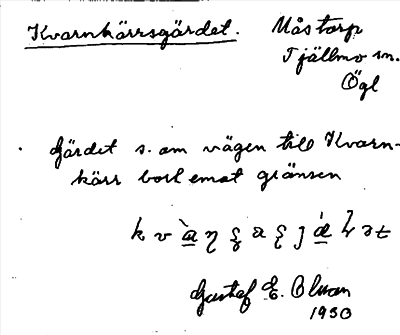 Kvarnkärrsgärdet. Måstorp
Tjällmo sn.
Ögl
Gärdet s. om vägen till Kvarn-
kärr bort emot gränsen
Gustaf E. Olsson
1930